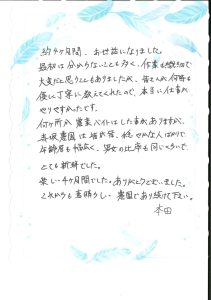 約4ヶ月間、お世話になりました。
最初は分からないことも多く、作業も
大変だと思うこともありましたが、皆さんが何時も
優しく丁寧に教えてくれたので、本当に仕事が
やりやすかったです。
何ヶ所か農業バイトはした事がありますが、
農園は皆が若く、穏やかな人ばかりで
年齢層も幅広く、男女の比率も同じくらいで、
とても新鮮でした。
楽しい4ヶ月間でした。ありがとうございました。
これからも素晴らしい農園であり続けて下さい。
本田